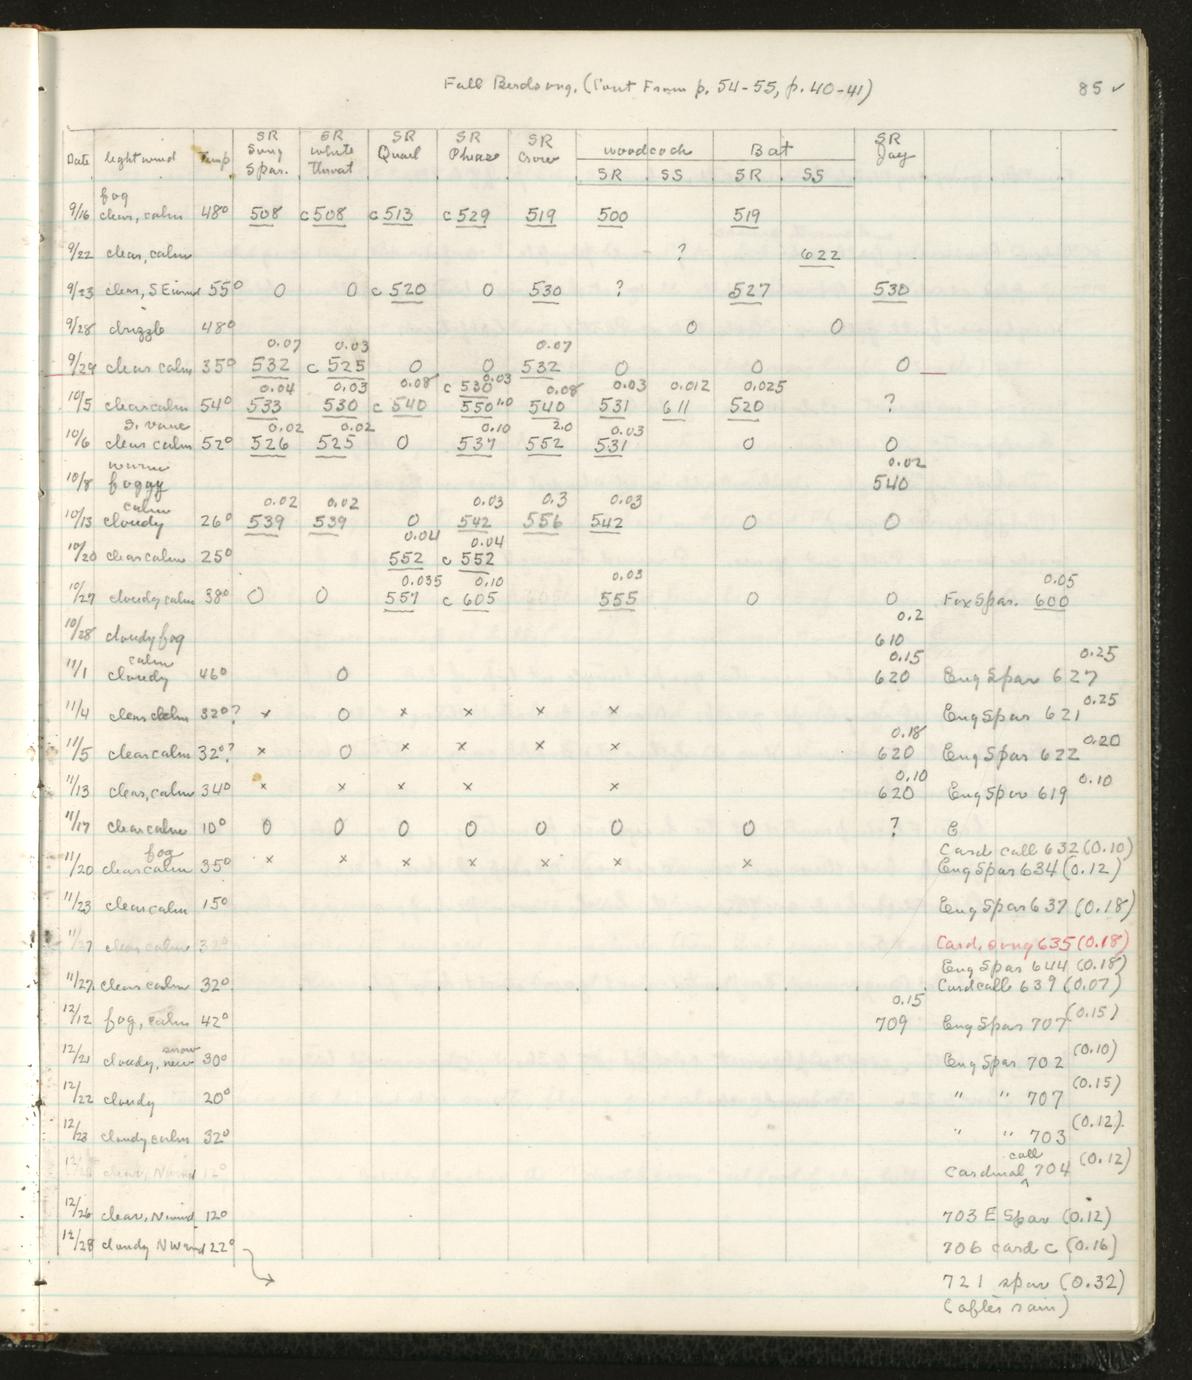 Fall Birdsong. (Cont From p. 54-55, p. 40-41) 85 ✓
Date light wind Temp SR Song Spar. SR White Throat SR Quail SR Pheas SR Crow woodcock SR SS Bat SR SS SR Jay
fog
9/16 clear, calm 48° 508 c 508 c 513 c 529 519 500 519
9/22 clear, calm ? 622
9/23 clear, SE wind 55° 0 0 c 520 0 530 ? 527 530
9/28 drizzle 48° 0 0
0.07 0.03 0.07
9/29 clear calm 35° 532 c 525 0 0 532 0 0 0
0.04 0.03 0.08 c 530 0.03 0.08 0.03 0.012 0.025
10/5 clear calm 54° 533 530 c 540 550 1.0 540 531 611 520 ?
0.02 0.02 0.10 2.0 0.03
10/6 clear calm 52° 526 525 0 537 552 531 0 0
warm 0.02
10/8 foggy 540
calm 0.02 0.02 0.03 0.3 0.03
10/13 cloudy 26° 539 539 0 542 556 542 0 0
0.04 0.04
10/20 clear calm 25° 552 c 552
0.035 0.10 0.03 0.05
10/27 cloudy calm 38° 0 0 557 c 605 555 0 0 Fox Spar. 600
0.2
10/28 cloudy fog 610
calm 0.15 0.25
11/1 cloudy 46° 0 620 Eng Spar 627
11/4 clear calm 32°? x 0 x x x x Eng Spar 621 0.25
0.18
11/5 clear calm 32°? x 0 x x x x 620 Eng Spar 622 0.20
0.10
11/13 clear, calm 34° x x x x x 620 Eng Spar 619 0.10
11/17 clear calm 10° 0 0 0 0 0 0 0 ? E
fog Card call 632 (0.10)
11/20 clear calm 35° x x x x x x x Eng Spar 634 (0.12)
11/23 clear calm 15° Eng Spar 637 (0.18)
11/27 clear calm 32° Card. song 635 (0.18)
Eng Spar 644 (0.18)
11/27. clear calm 32° Card calle 639 (0.07)
0.15
12/12 fog, calm 42° 709 Eng Spar 707 (0.15)
snow
12/21 cloudy, new 30° Eng Spar 702 (0.10)
12/22 cloudy 20° " " 707 (0.15)
12/23 cloudy calm 32° " " 703 (0.12)
call
clear, N wind 12° Cardinal ^ 704 (0.12)
12/26 clear, N wind 12° 703 E Spar (0.12)
12/28 cloudy NW wind 22° 706 card c (0.16)
721 spar (0.32)
(after rain)